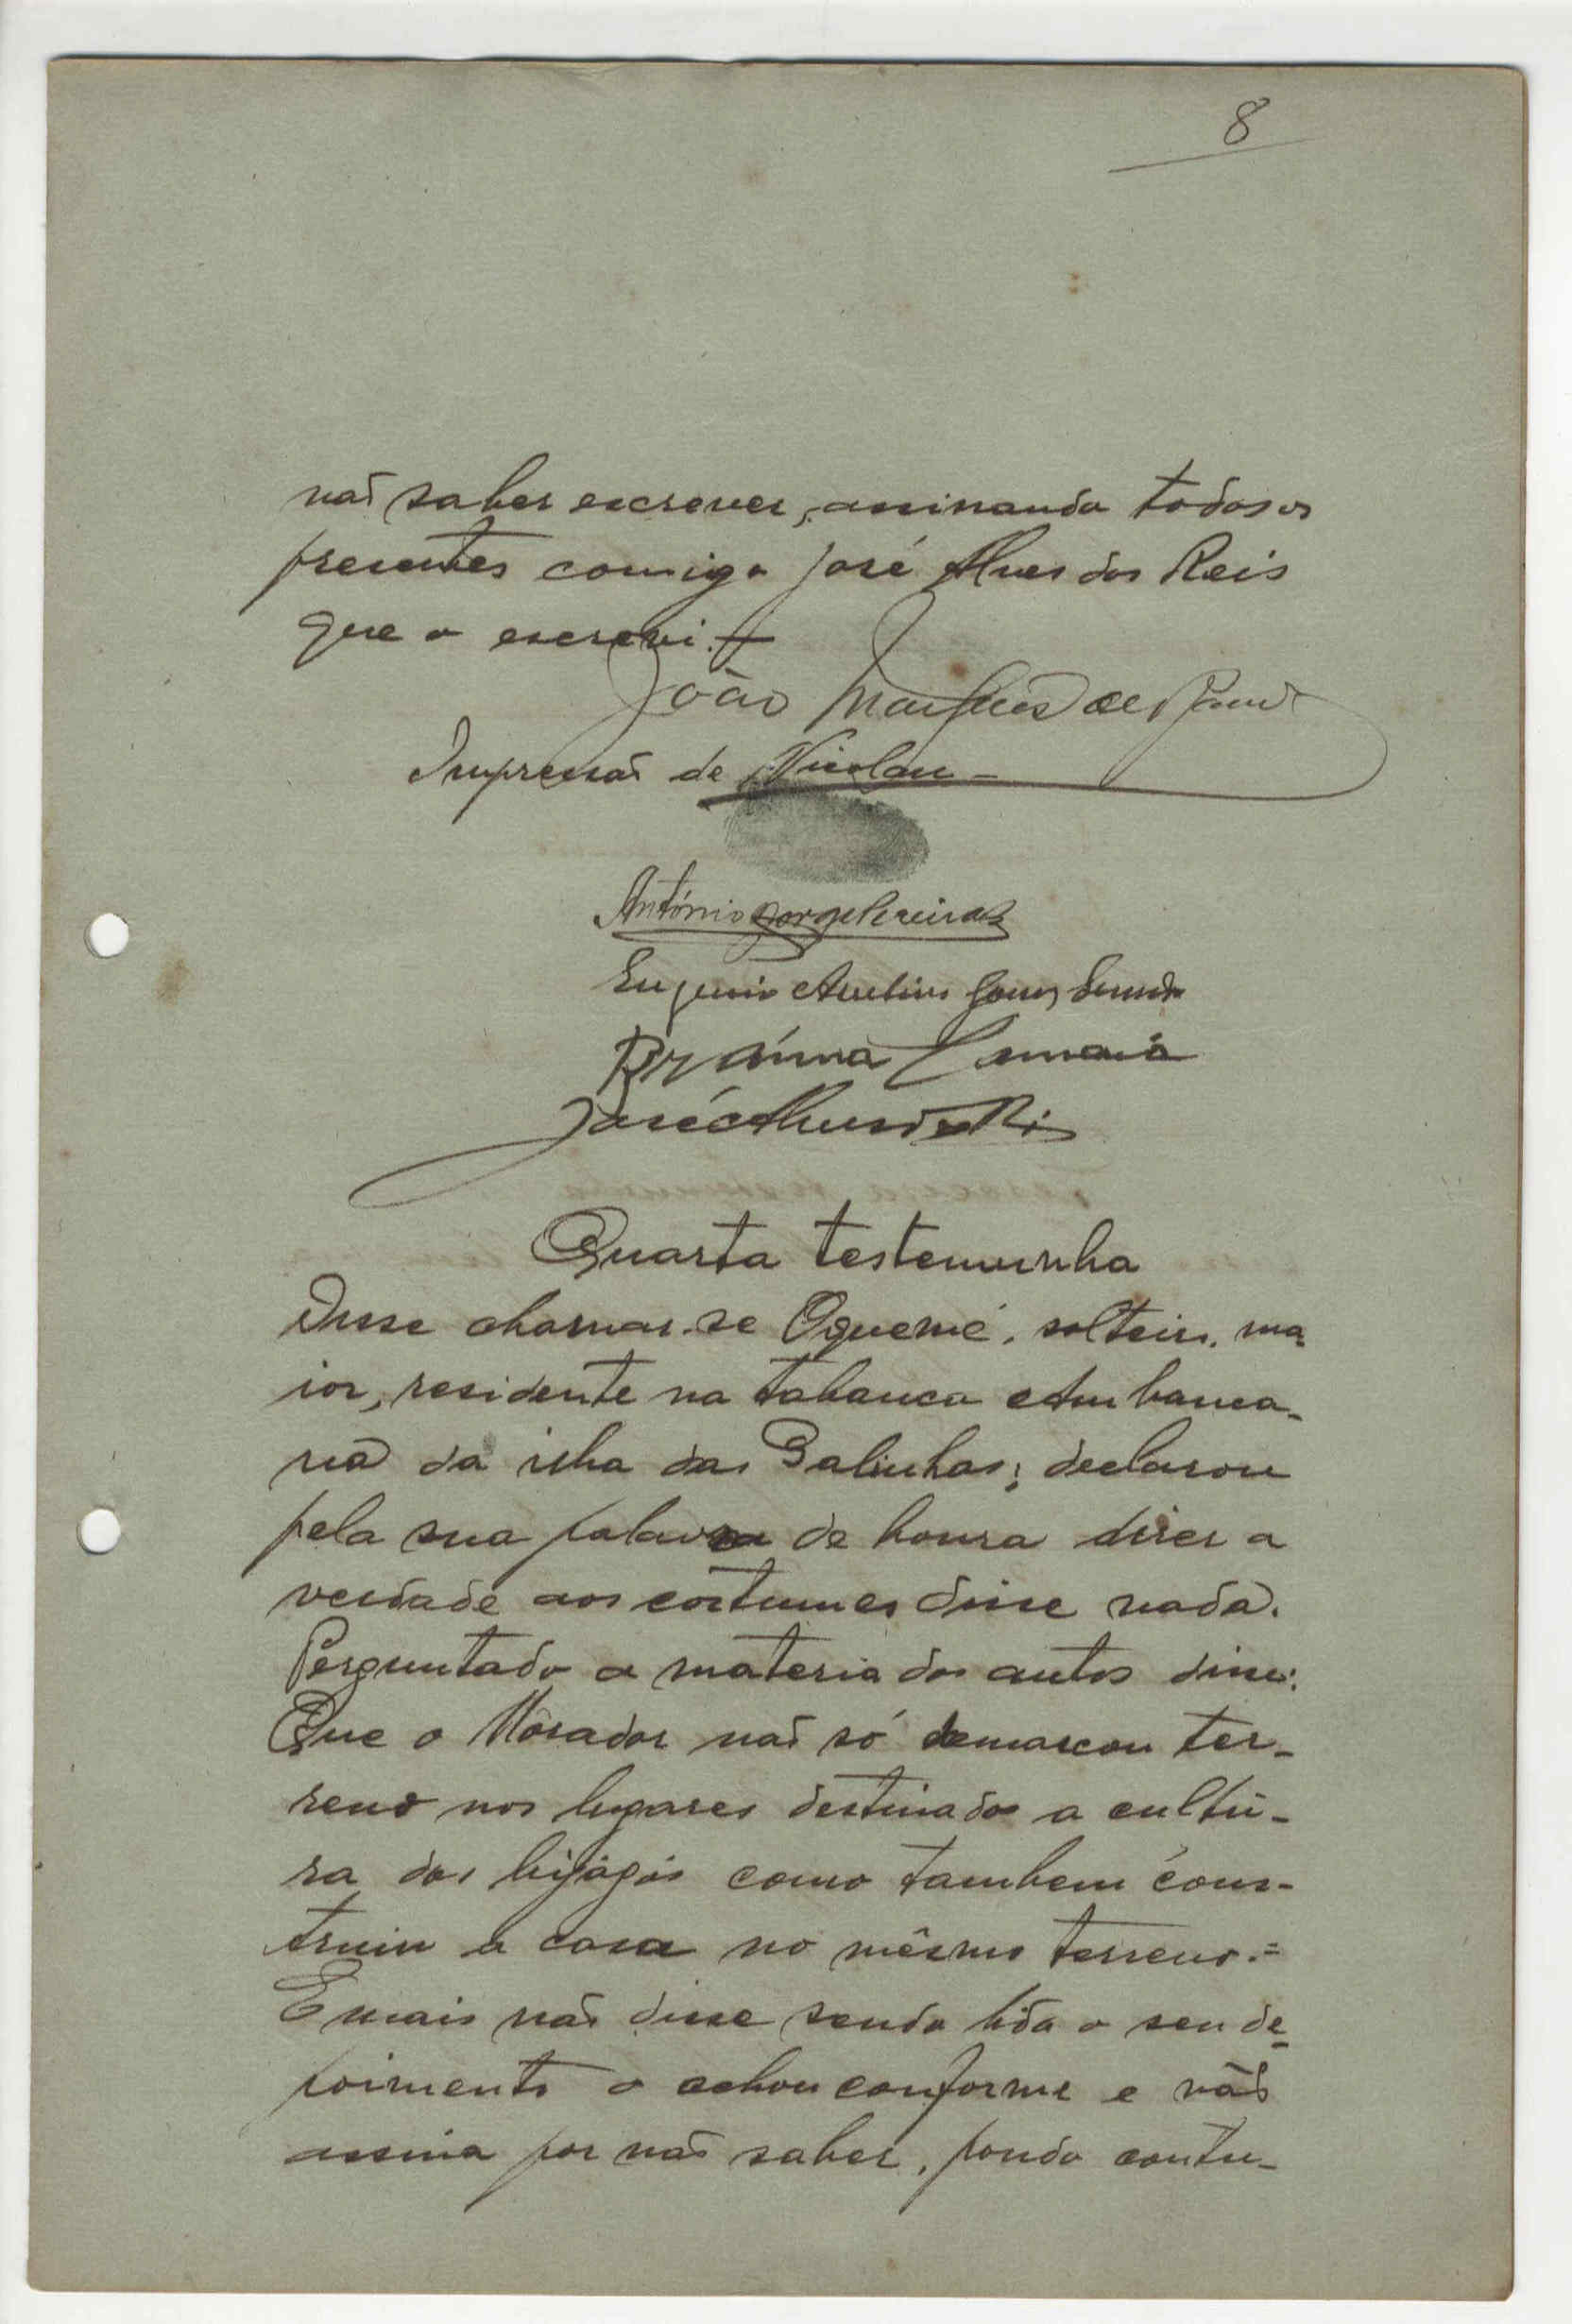 8
não saber escrever, assinando todos os
presentes comigo José Alves dos Reis
que o escrevi.
João Marques de
Impressão de Nicolau
António Jorge
Eugenio Avelino Gomes
José Alves dos Reis
Quarta testemunha
Disse chamar-se Oquemé, solteiro, ma-
ior, residente na tabanca Ambanca-
nã da ilha das Galinhas; declarou
pela sua palavra de honra dizer a
verdade aos costumes disse nada.
Perguntado a materia dos autos disse:
Que o Morador não só demarcou ter-
reno nos lugares destinados a cultu-
ra dos bijágós como tambem cons-
truiu a casa no mêsmo terreno.=
E mais não disse sendo lido o seu de-
poimento o achou conforme e não
assina por não saber, pondo contu-